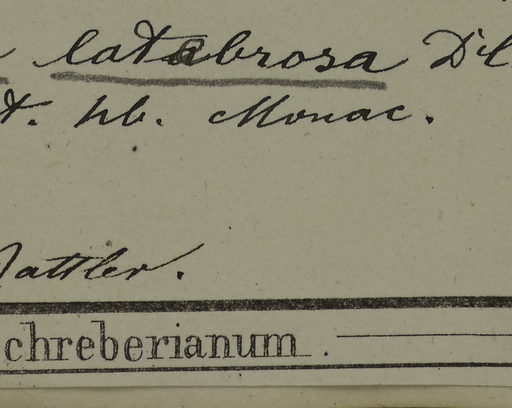 latebrosa Dil
t. hb. Monac.
Nattler.
chreberianum.